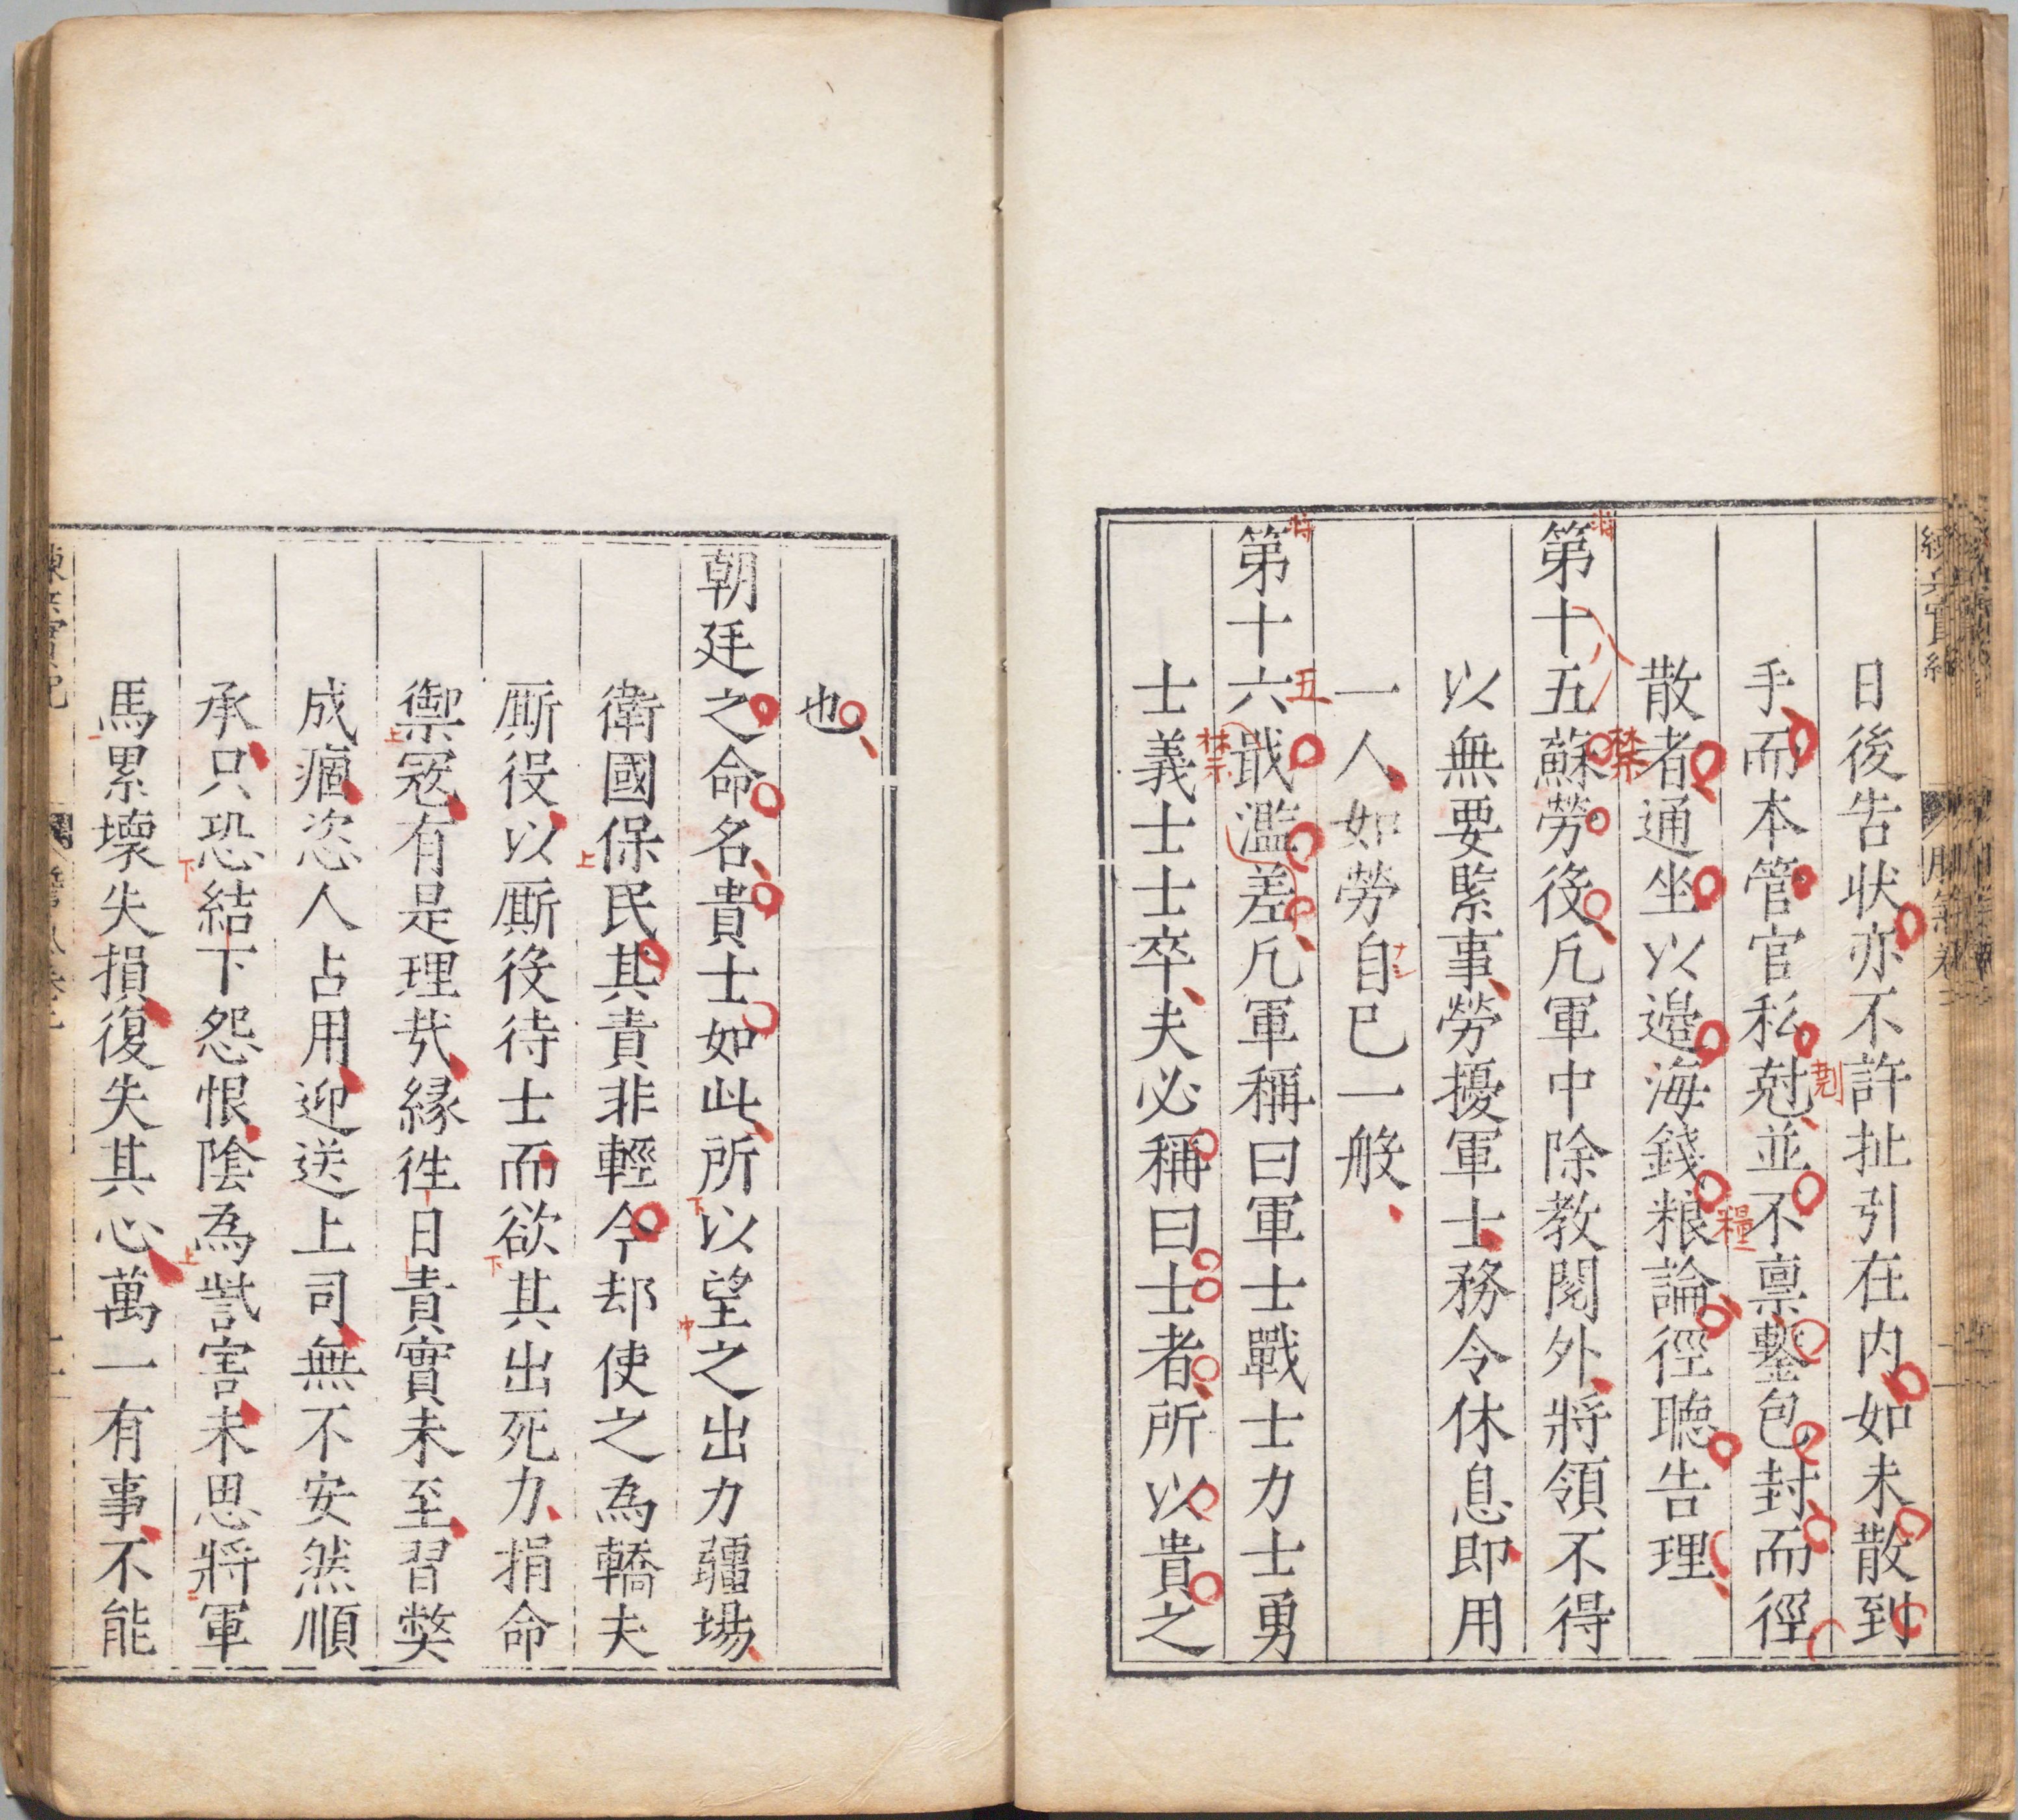 日後告状亦不許扯引在内如未散到
手而本管官私尅並不禀鑿包封而徑
散者通坐以邉海錢粮論徑聴告理
第十五蘇勞役凡軍中除教閱外將領不得
以無要緊事勞擾軍士務令休息即用
一人如勞自己一般
第十六戢濫差凡軍稱曰軍士戰士力士勇
士義士士卒夫必稱曰士者所以貴之
也
朝廷之命名貴士如此所以望之出力疆場
衛國保民其責非輕今却使之為轎夫
厮役以厮役待士而欲其出死力捐命
禦冦有是理㦲縁徃日責實未至習獘
成痼恣人占用迎送上司無不安然順
承只恐結下怨恨隂為訾害未思將軍
馬累壞失損復失其心萬一有事不能
五
禁
禁
八
剋
糧